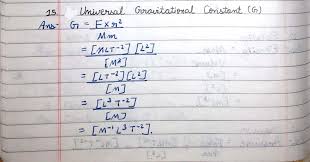 15. Universal Gravitational Constant (G)
Ans- G = F × r²
Mm
= [MLT⁻²] [L²]
[M²]
= [LT⁻²] [L²]
[M]
= [L³ T⁻²]
[M]
= [M⁻¹ L³ T⁻²].